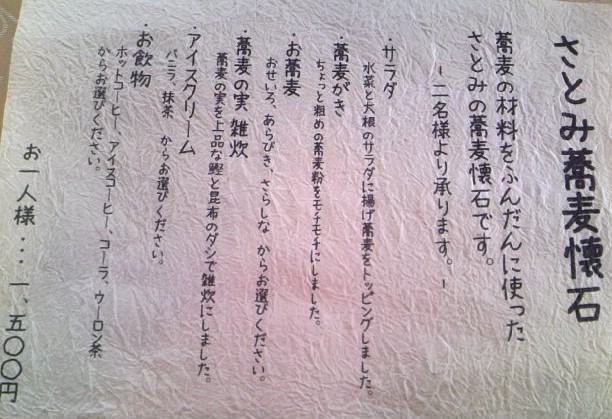 さとみ蕎麦懐石
蕎麦の材料をふんだんに使った
さとみの蕎麦懐石です。
－二名様より承ります。－
・サラダ
水菜と大根のサラダに揚げ蕎麦をトッピングしました。
・蕎麦がき
ちょっと粗めの蕎麦粉をモチモチにしました。
・お蕎麦
おせいろ、あらびき、さらしな からお選びください。
・蕎麦の実 雑炊
蕎麦の実を上品な鰹と昆布のダシで雑炊にしました。
・アイスクリーム
バニラ、抹茶 からお選びください。
・お飲物
ホットコーヒー、アイスコーヒー、コーラ、ウーロン茶
からお選びください。
お一人様…一、五〇〇円